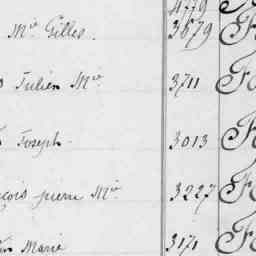 4779
Mie Gilles. 3679
Julien Mie 3711
Joseph 3013
pierre Mie 3227
Marie 3171